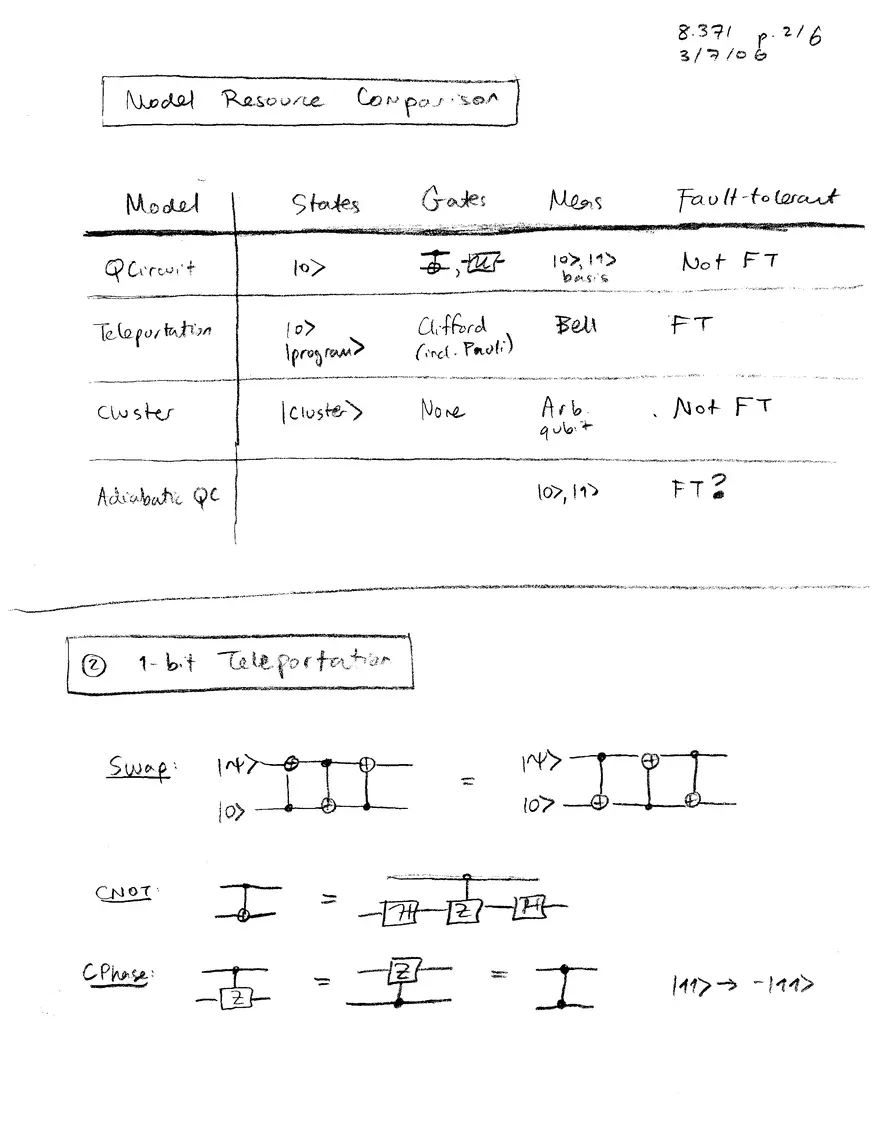 8.371 p. 2/6
3/7/06
Model Resource Comparison
Model States Gates Meas Fault-tolerant
QCircuit |0> , U |0>,|1> basis Not FT
Teleportation |0> |program> Clifford (incl. Pauli) Bell FT
Cluster |Cluster> None Arb. qubit Not FT
Adiabatic QC |0>,|1> FT?
② 1-bit Teleportation
Swap: |ψ> = |ψ>
|0> |0>
CNOT: = H Z H
CPhase: Z = Z = |11> → -|11>